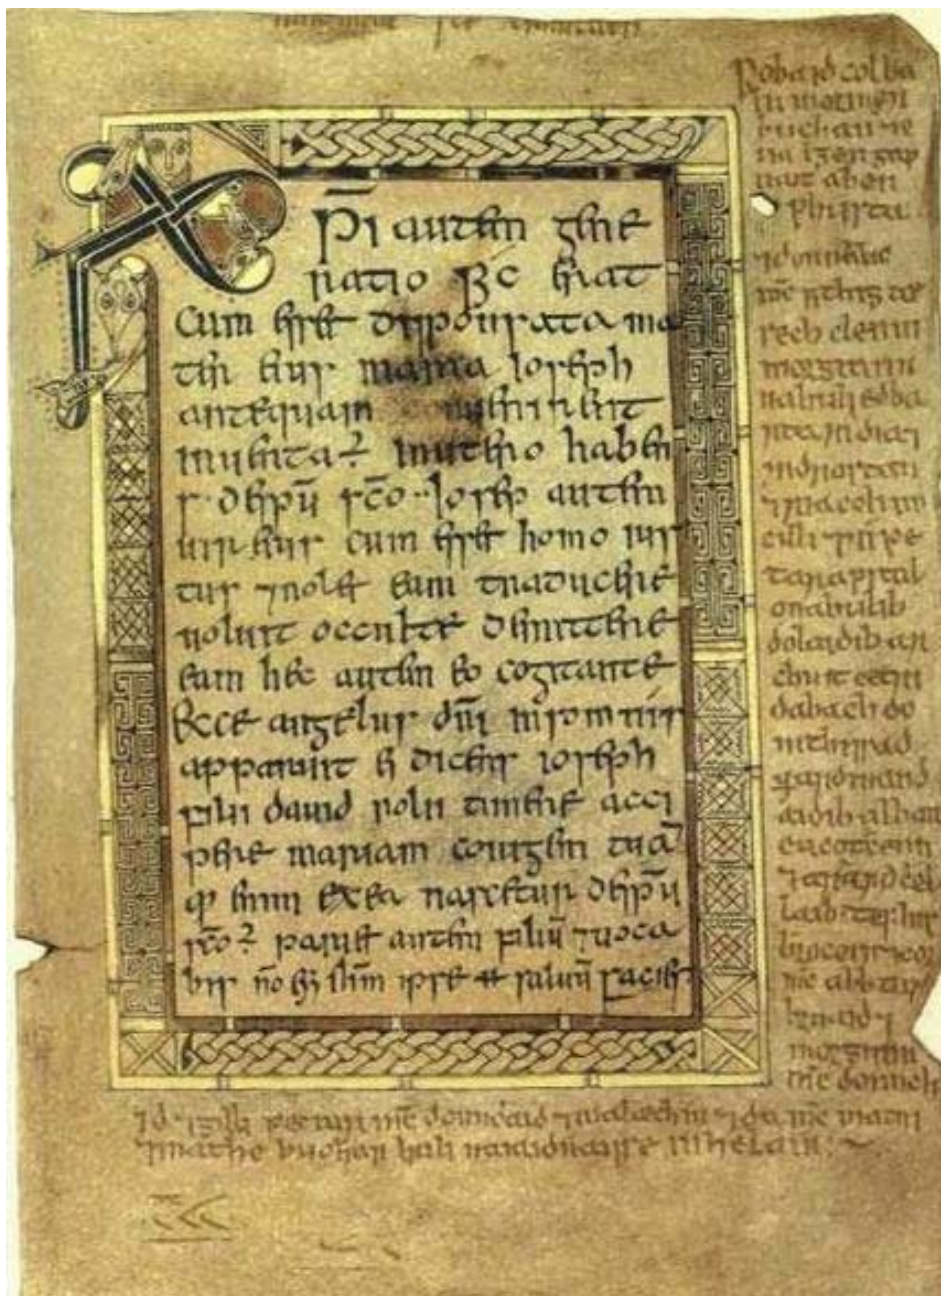 X̄PI autem gene
ratio sic erat
Cum esset disponsata ma
ter eius maria Ioseph
antequam conuenirent
inuenta ÷ inutero haben
s · despū sc̄o · Iosep autem
uir eius cum esset homo ius
tus ⁊nolet eam traducere
uoluit occulte demittere
eam hec autem eo cogitante
Ecce angelus dn̄i insomnis
apparuit ei dicens ioseph
filii dauid noli timere acci
pere mariam coniugem tuā
qd enim exea nascetur despū
sc̄o ÷ pariet autem filiū ⁊uoca
bis nō eius ihm ipse enim saluū faciet
Robaid colba
in mormér
buchan ⁊e
ua ingen gar
nait aben
phusta
⁊donnchac
mc̄ sithig toe
sech clenni
morgainn
nahuli edba
rta ri dia ⁊
ri drostan
⁊ria colum
cilli ⁊ri pe
tar apstal
onahulib
dolaidib ar
chuit cetri
dabach do
nithissad
ar ardmand
aidib alban
cucotcenn
⁊arardchel
laib test his
brocin ⁊cor
mc abb tur
bruaid ⁊
morgunn
mc̄ donnch
id ⁊gilli petair mc̄ donnchaid ⁊malæchin ⁊da mc̄ matni
⁊mathe buchan huli naiaidnaisse inhelain:~